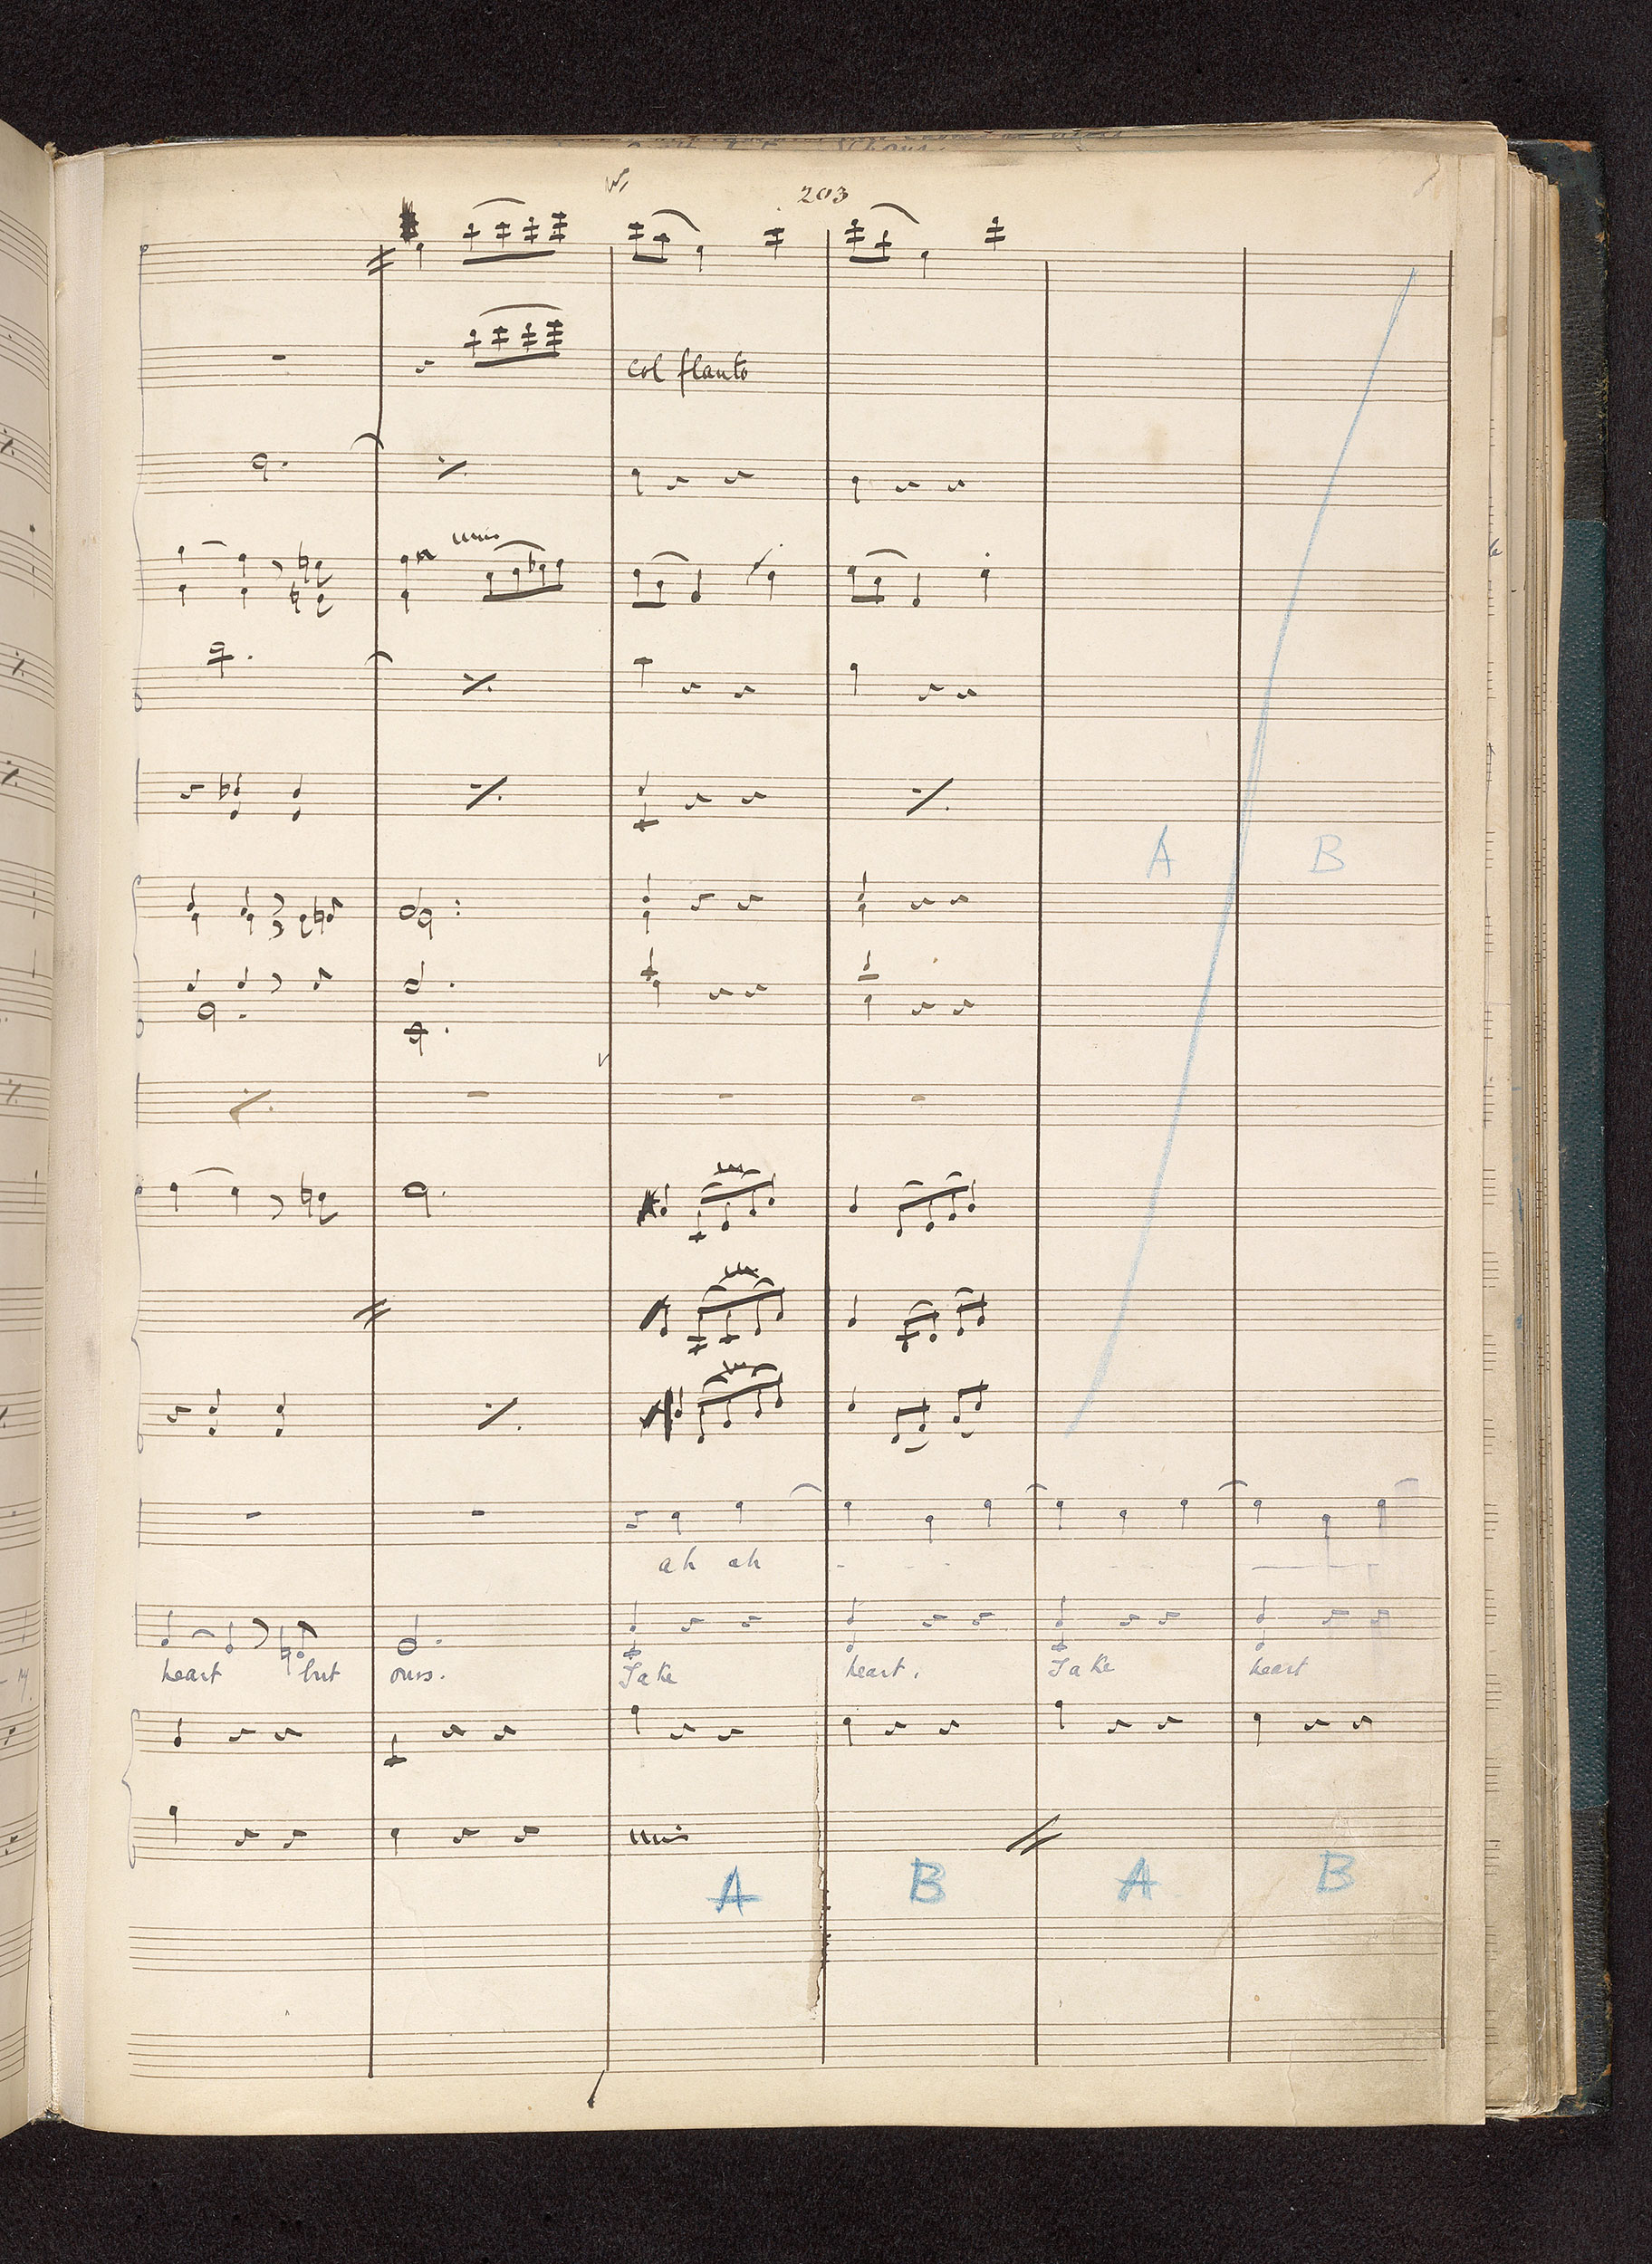 203
col flauto
unis
A B
ah ah
heart but ours. Take heart. Take heart
unis
A B A B